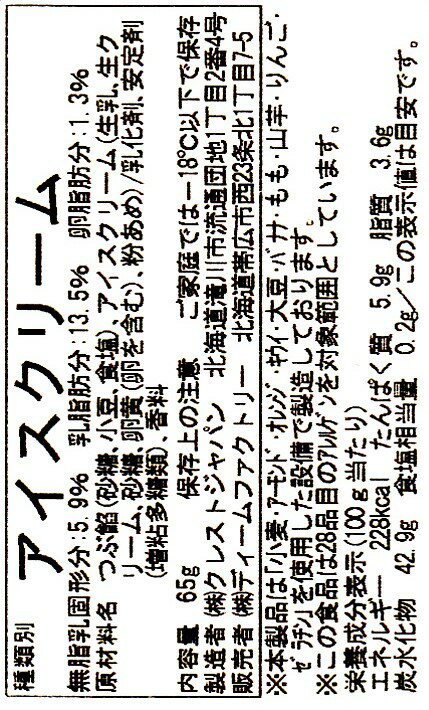 種類別 アイスクリーム
無脂乳固形分:5.9% 乳脂肪分:13.5% 卵脂肪分:1.3%
原材料名 つぶ餡(砂糖、小豆、食塩)、アイスクリーム(生乳、生ク
リーム、砂糖、卵黄(卵を含む)、粉あめ)/乳化剤、安定剤
(増粘多糖類)、香料
内容量 65g 保存上の注意 ご家庭では−18℃以下で保存
製造者 ㈱クレストジャパン 北海道滝川市流通団地1丁目2番4号
販売者 ㈱ディームファクトリー 北海道帯広市西23条北1丁目7-5
※本製品は「小麦・アーモンド・オレンジ・キウイ・大豆・バナナ・もも・山芋・りんご・
ゼラチン」を使用した設備で製造しております。
※この食品は28品目のアレルゲンを対象範囲としています。
栄養成分表示(100g当たり)
エネルギー 228kcal たんぱく質 5.9g 脂質 3.6g
炭水化物 42.9g 食塩相当量 0.2g/この表示値は目安です。